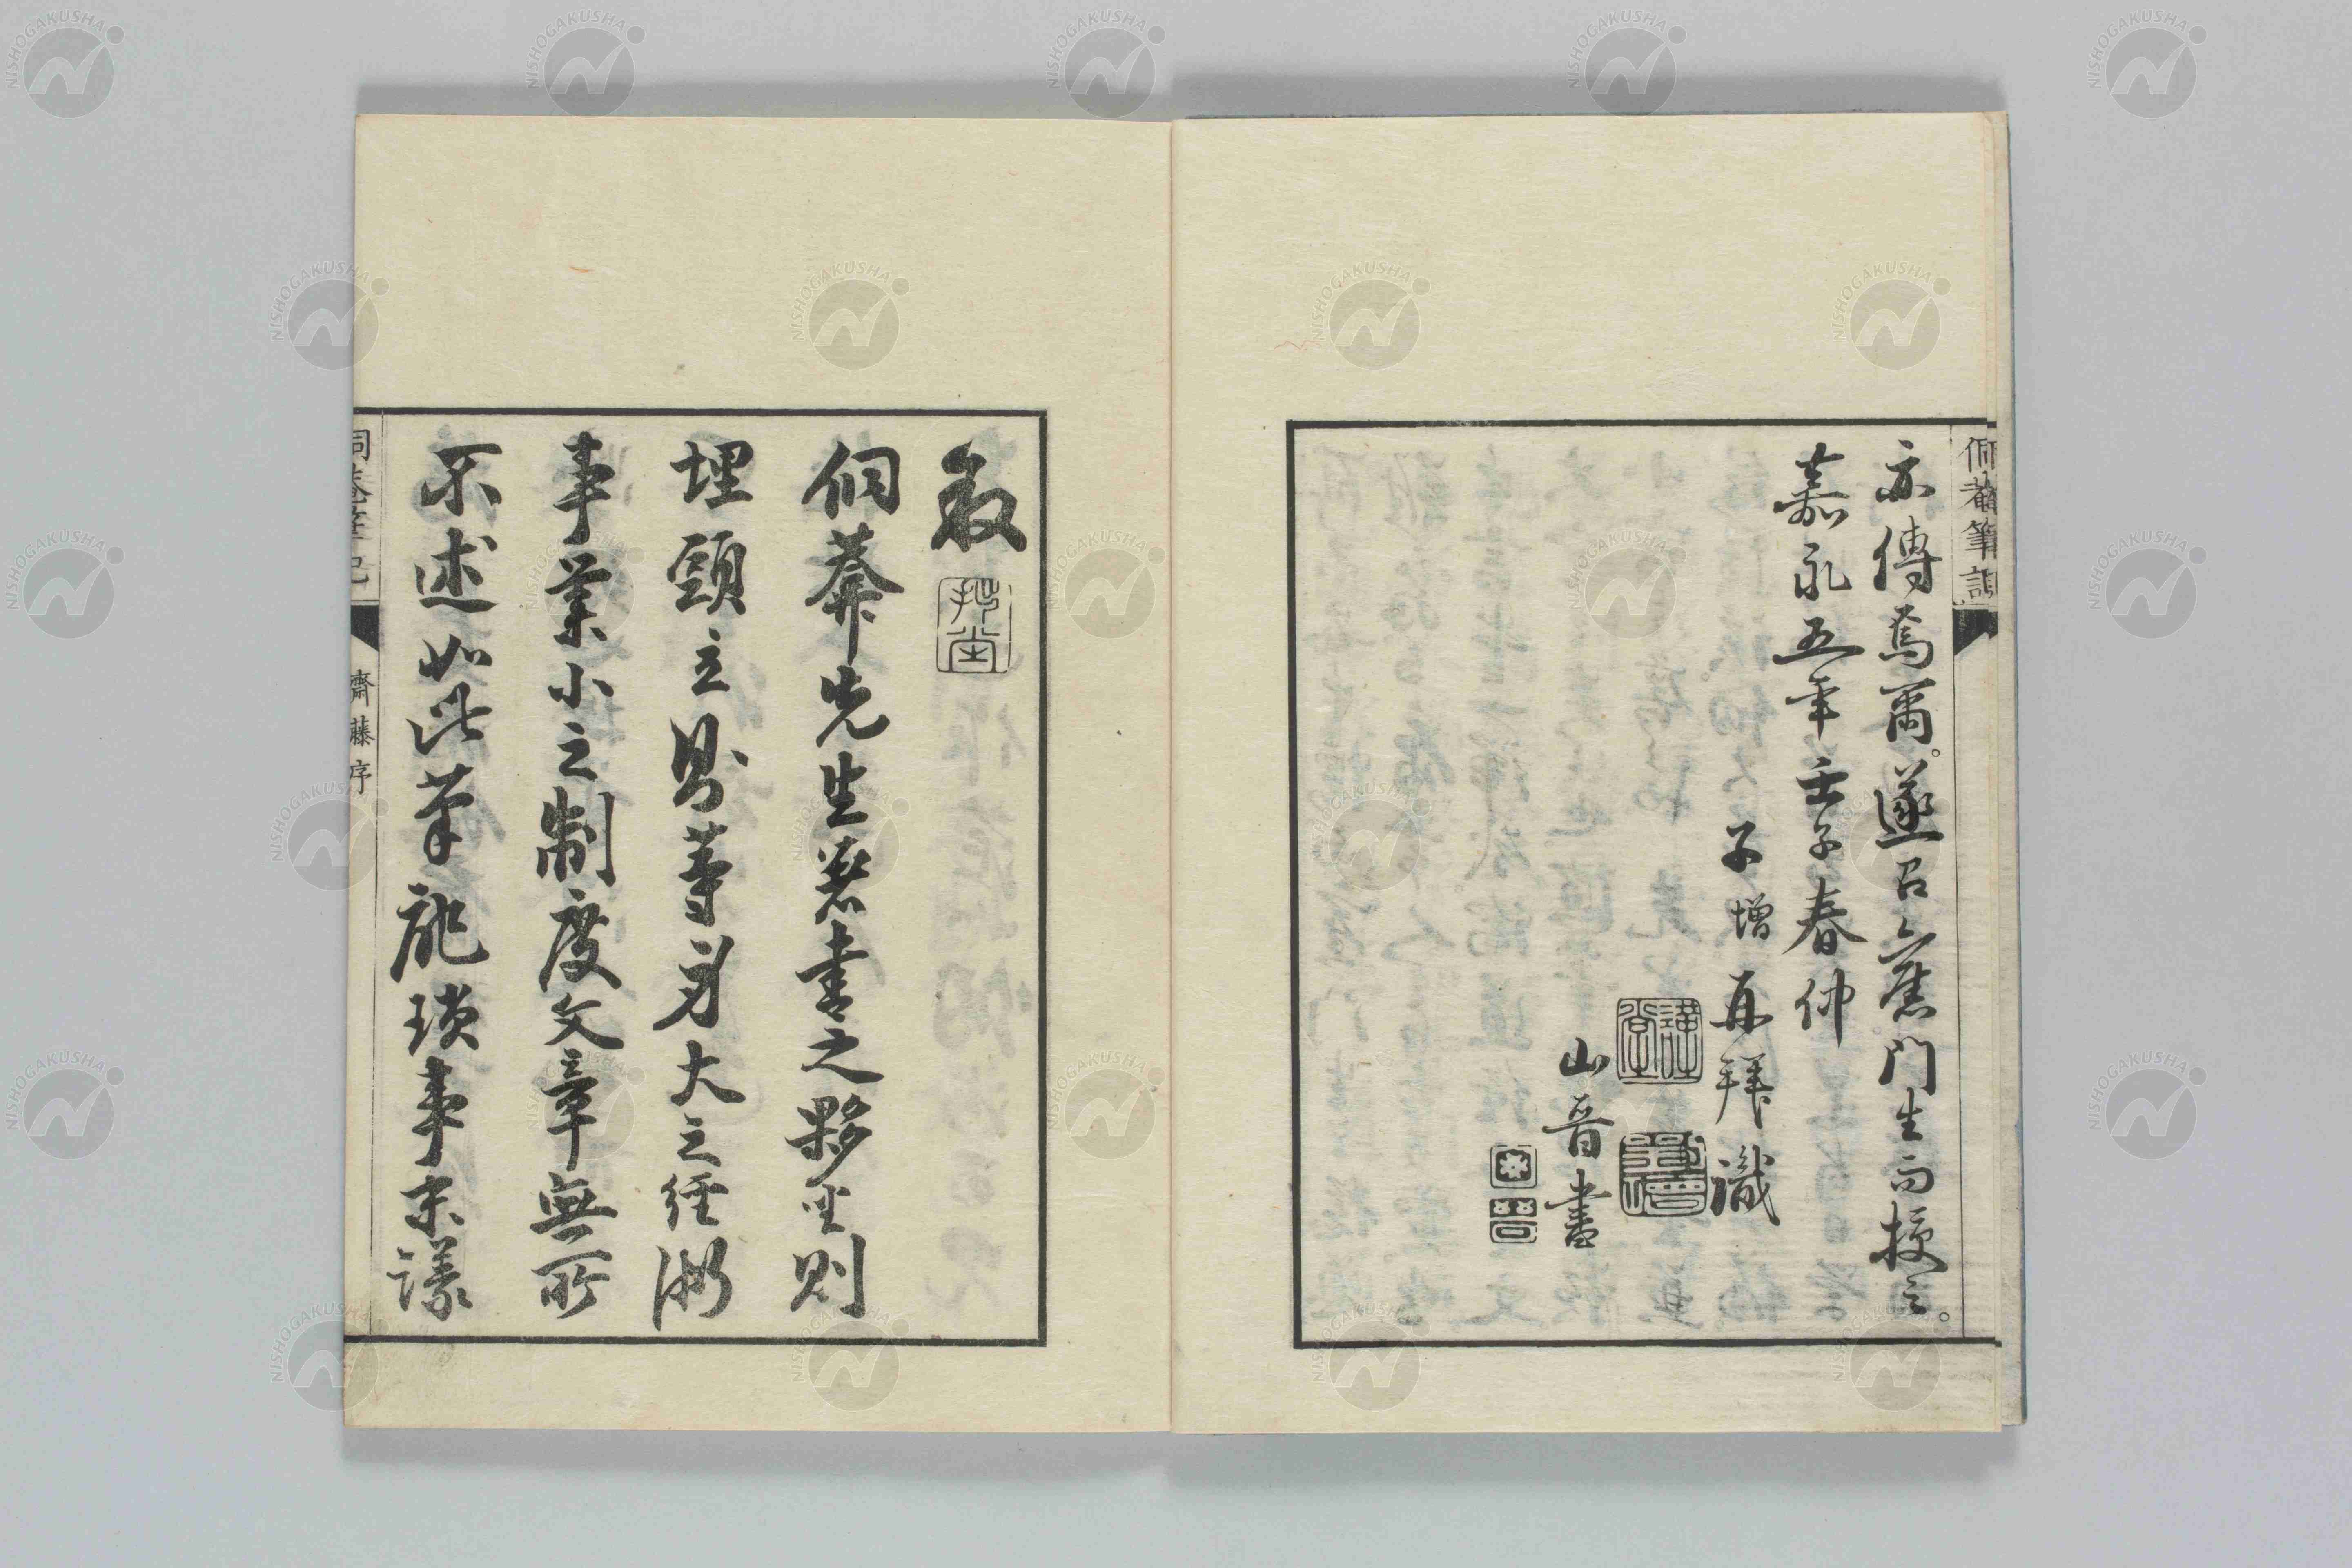 侗菴筆記
亦傳焉爾。遂召舊門生而授之。
嘉永五年壬子春仲
子增再拜識
山晋書
敘
侗菴先生著書之夥坐則
埋頭立則等身大之經濟
事業小之制度文章無所
不述如此筆記瑣事末議
侗菴筆記
齋藤序
NISHOGAKUSHA